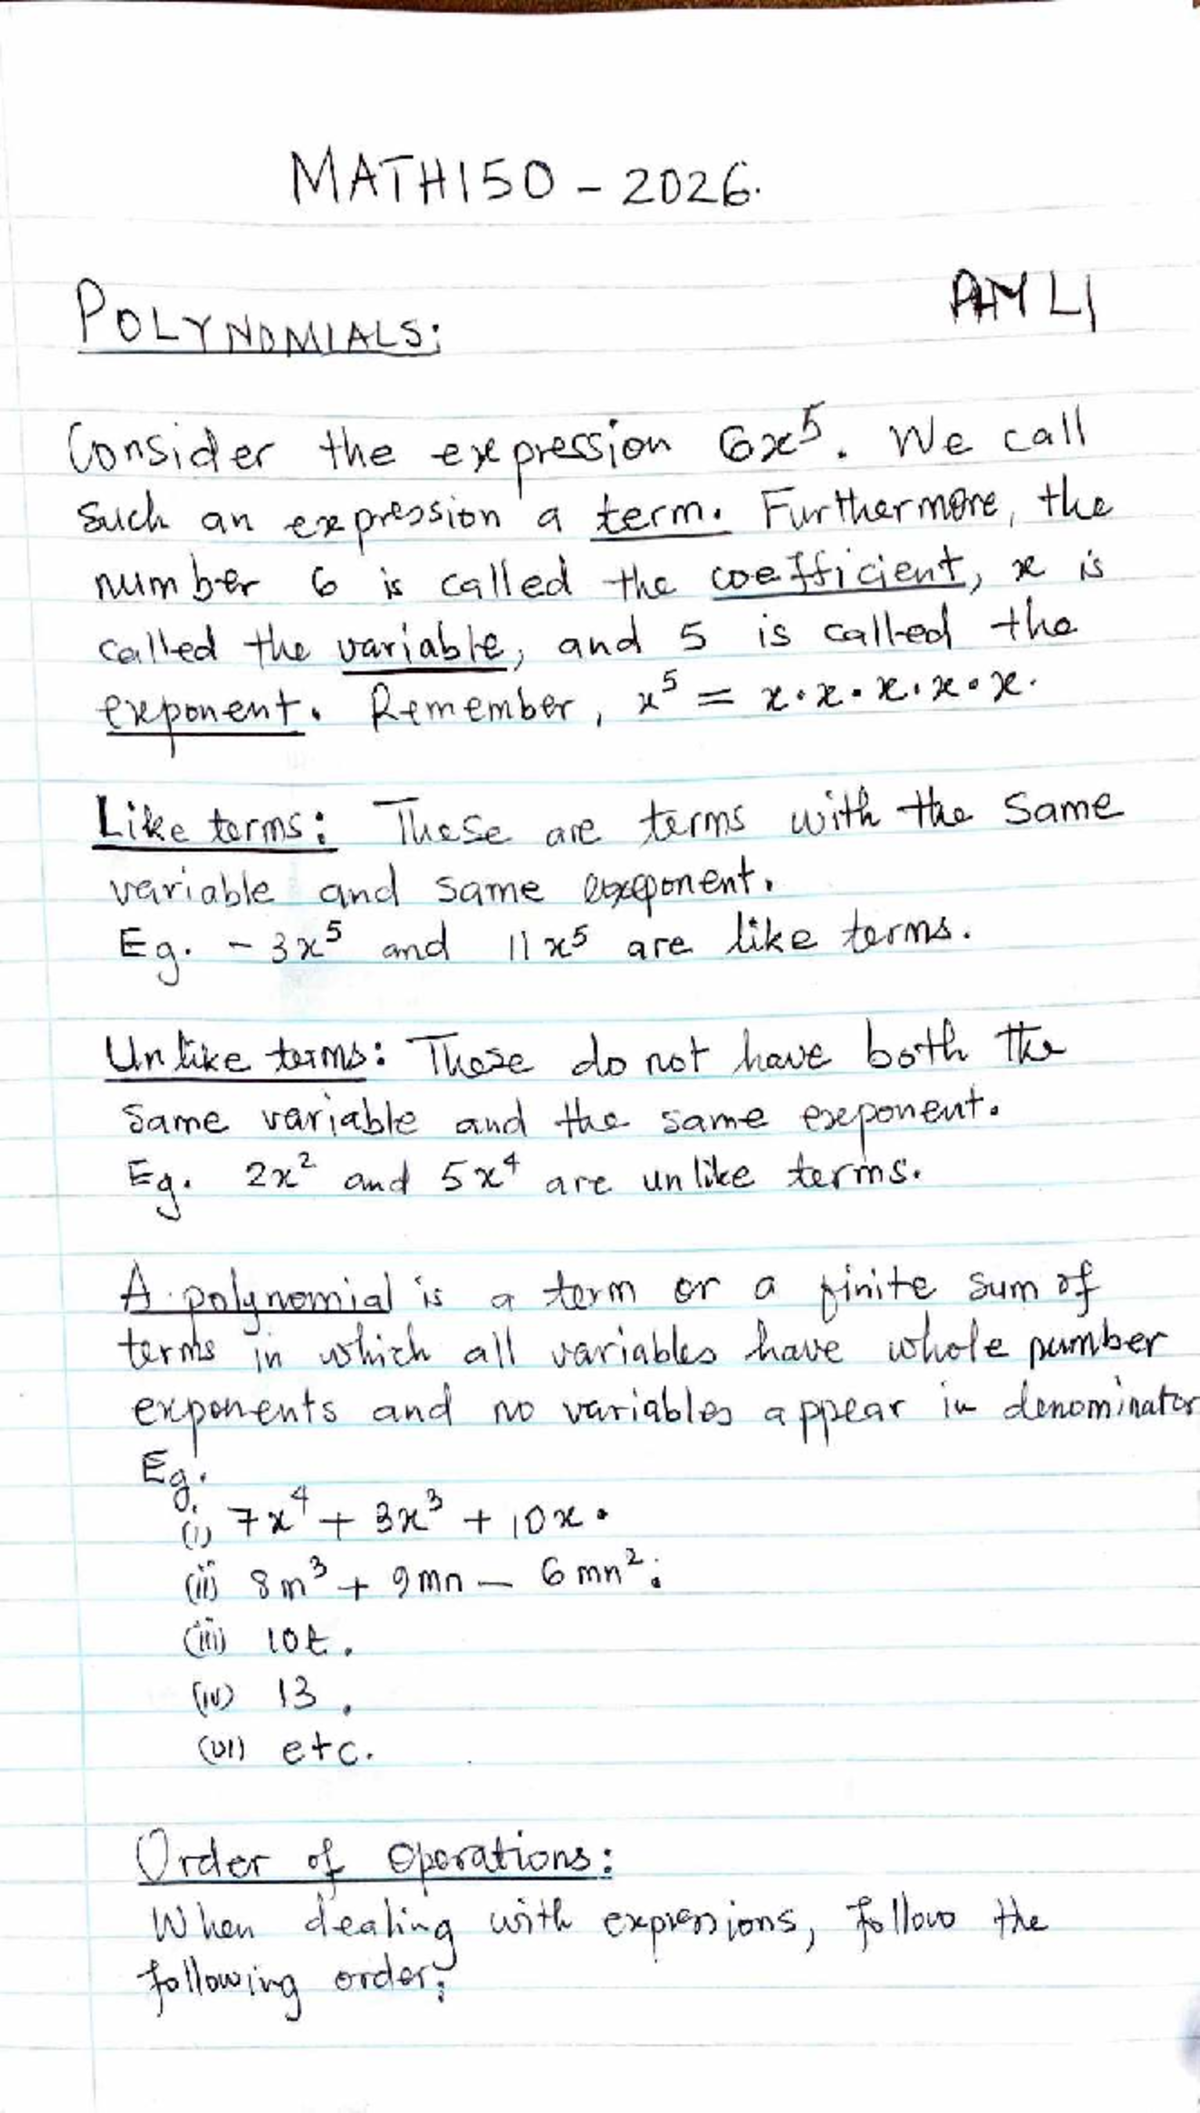 MATH150 - 2026.
POLYNOMIALS:
Consider the expression 6x⁵. We call
such an expression a term. Furthermore, the
number 6 is called the coefficient, x is
called the variable, and 5 is called the
exponent. Remember, x⁵ = x·x·x·x·x.
Like terms: These are terms with the same
variable and same exponent.
Eg. -3x⁵ and 11x⁵ are like terms.
Unlike terms: These do not have both the
same variable and the same exponent.
Eg. 2x² and 5x⁴ are unlike terms.
A polynomial is a term or a finite sum of
terms in which all variables have whole number
exponents and no variables appear in denominator
Eg.
(i) 7x⁴ + 3x³ + 10x.
(ii) 8m³ + 9mn - 6mn²;
(iii) 10t.
(iv) 13.
(vi) etc.
Order of Operations:
When dealing with expressions, follow the
following order: